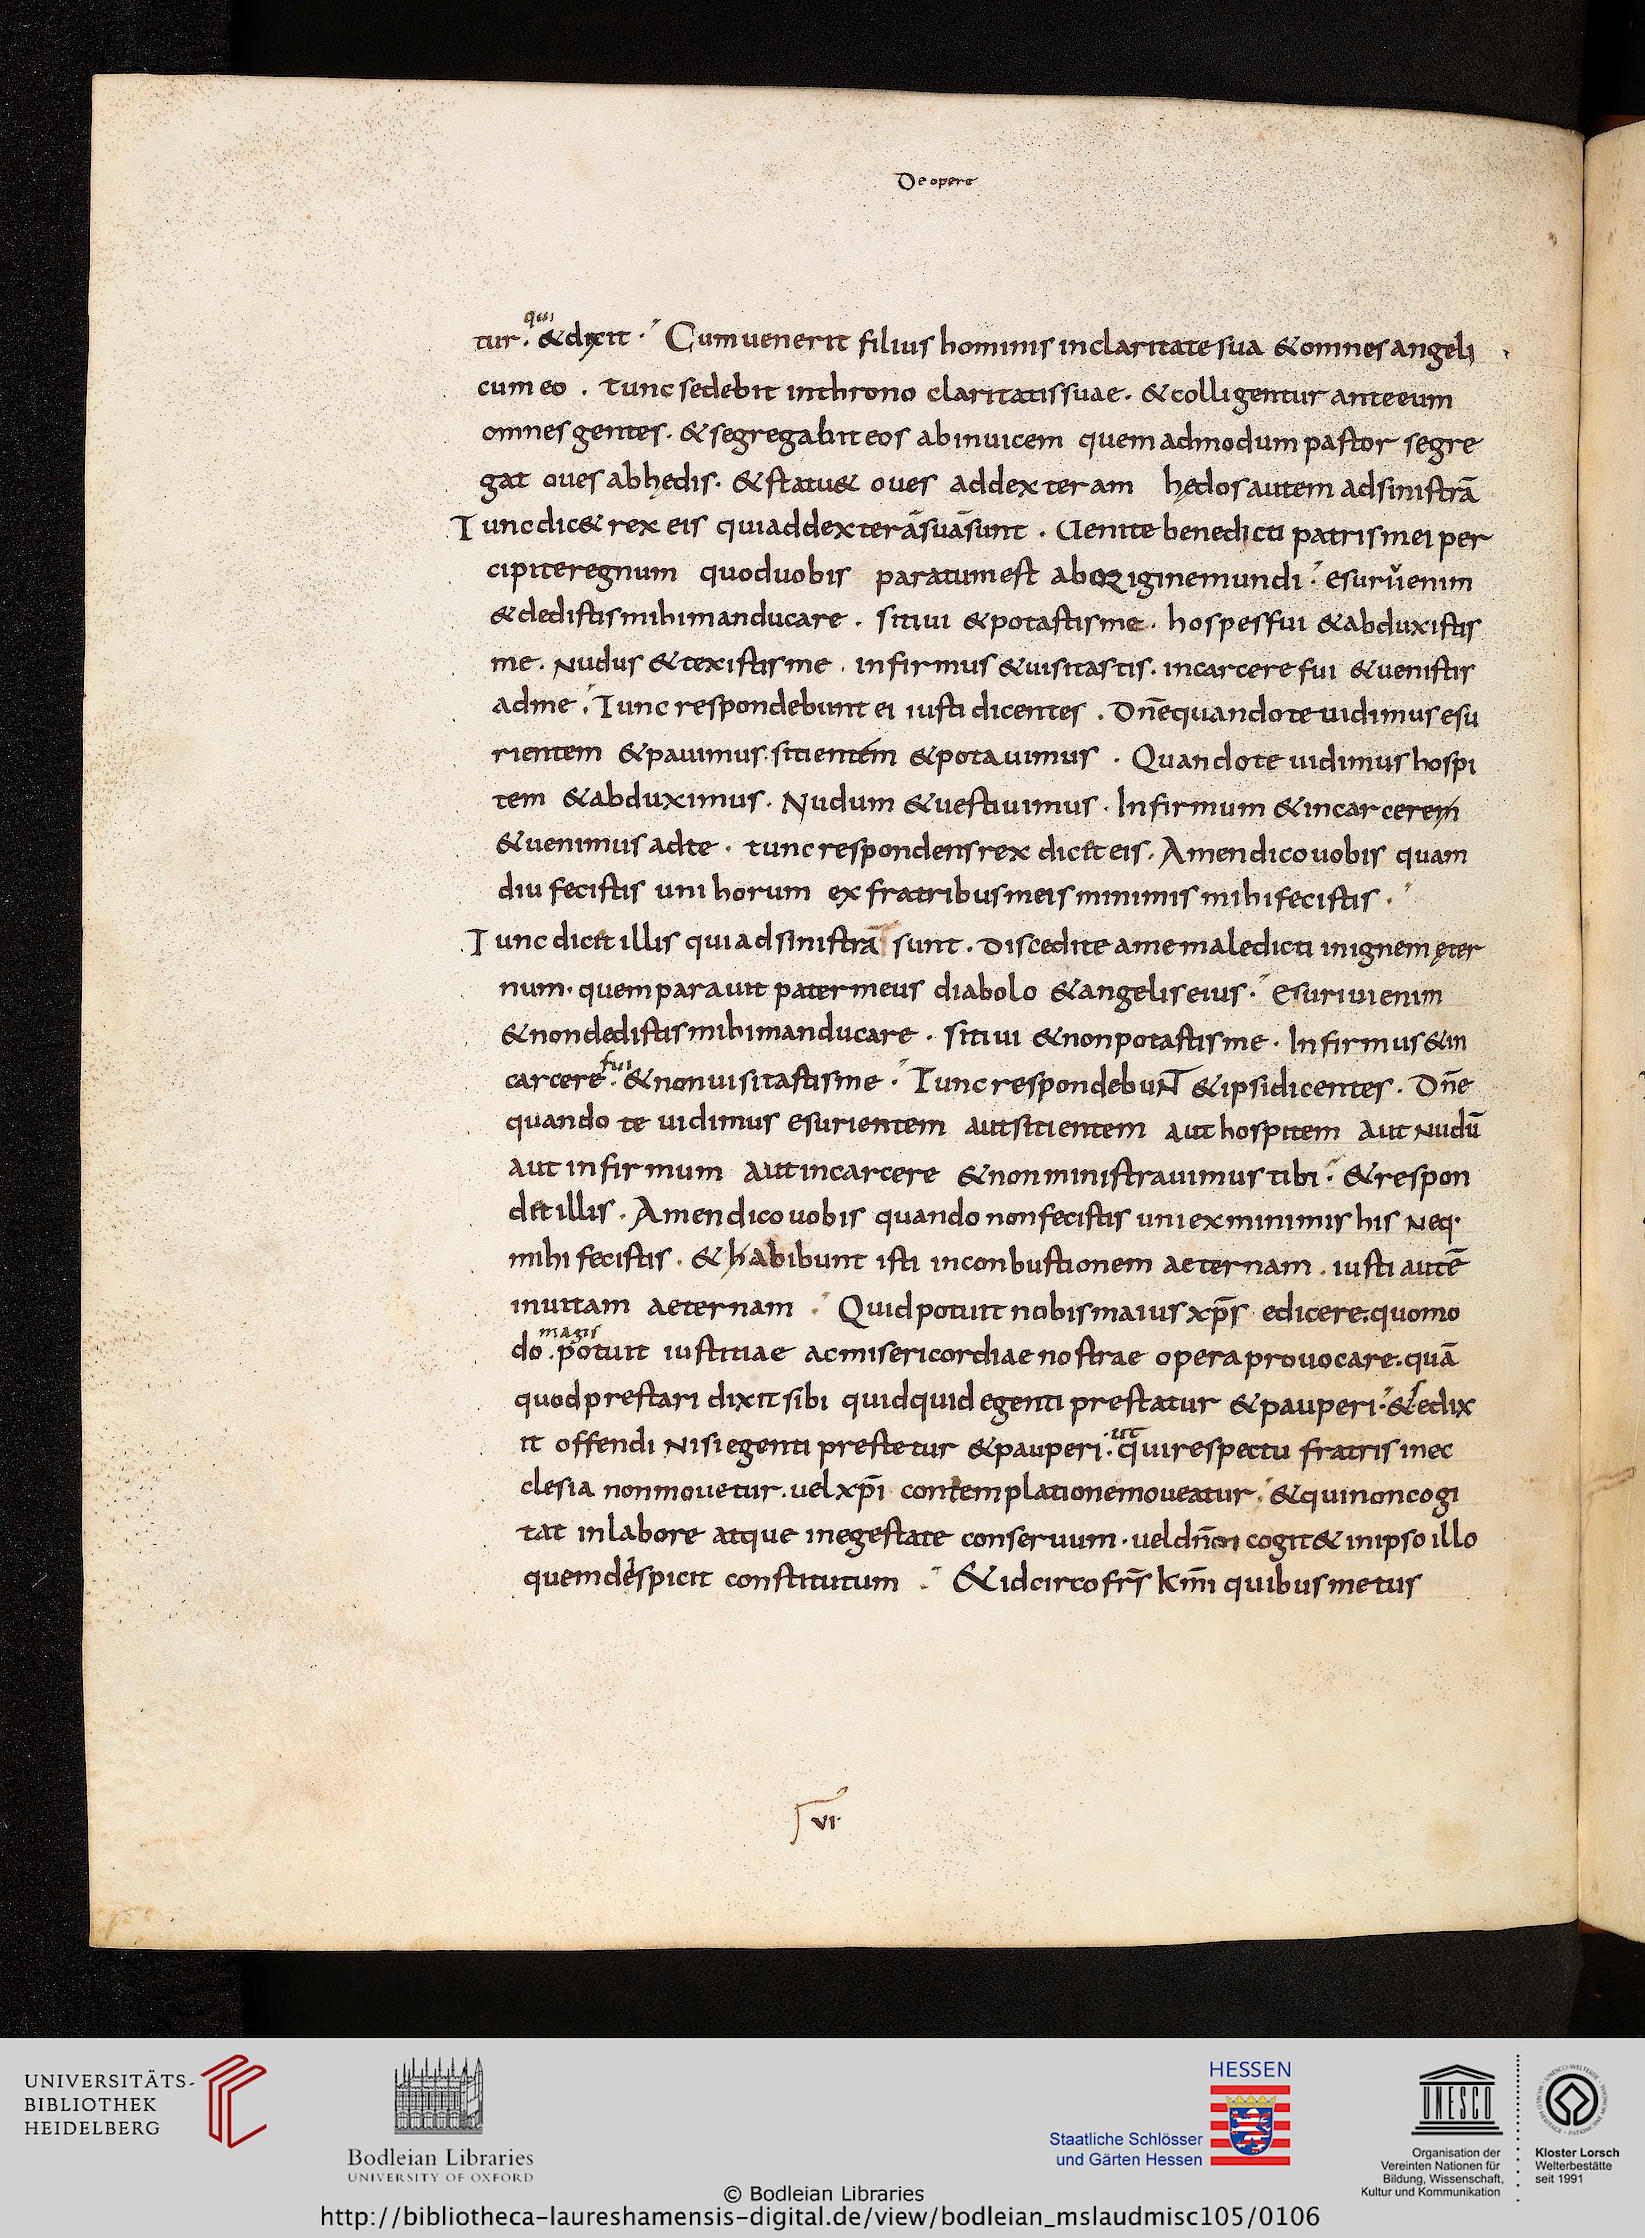 De opere
qui
tur. & dicit. Cum uenerit filius hominis in claritate sua & omnes angeli
cum eo. tunc sedebit in throno claritatis suae. & colligentur ante eum
omnes gentes. & segregabit eos ab inuicem quem admodum pastor segre
gat oues ab hędis. & statu& oues ad dexteram hędos autem ad sinistrā
Tunc dic& rex eis qui ad dexterā suā sunt. Uenite benedicti patris mei per
cipite regnum quod uobis paratum est ab origine mundi. esuriui enim
& dedistis mihi manducare. sitiui & potastis me. hospes fui & abduxistis
me. Nudus & texistis me. infirmus & uisitastis. in carcere fui & uenistis
ad me. Tunc respondebunt ei iusti dicentes. Dn̄e quando te uidimus esu
rientem & pauimus. sitientem & potauimus. Quando te uidimus hospi
tem & abduximus. Nudum & uestiuimus. Infirmum & in carcerem
& uenimus ad te. tunc respondens rex dicit eis. Amen dico uobis quam
diu fecistis uni horum ex fratribus meis minimis mihi fecistis.
Tunc dicit illis qui ad sinistrā sunt. Discedite a me maledicti in ignem ęter
num. quem parauit pater meus diabolo & angelis eius. esuriui enim
& non dedistis mihi manducare. sitiui & non potastis me. Infirmus & in
fui
carcere. & non uisitastis me. Tunc respondebunt & ipsi dicentes. Dn̄e
quando te uidimus esurientem aut sitientem aut hospitem aut nudū
aut infirmum aut in carcere & non ministrauimus tibi. & respon
dit illis. Amen dico uobis quando non fecistis uni ex minimis his neq.
mihi fecistis. & habibunt isti inconbustionem aeternam. iusti autē
in uitam aeternam. Quid potuit nobis maius xp̄s edicere. quomo
magis
do. potuit iustitiae ac misericordiae nostrae opera prouocare. quā
quod prestari dixit sibi quidquid egenti prestatur & pauperi. & se dix
it offendi nisi egenti prestetur & pauperi. ut
qui respectu fratris in ec
clesia non mouetur. uel xp̄i contemplatione moueatur. & qui non cogi
tat in labore atque in egestate conseruum. uel dn̄m cogit& in ipso illo
quem despicit constitutum. & idcirco fr̄s km̄i quibus metus
VI
UNIVERSITÄTS-
BIBLIOTHEK
HEIDELBERG
Bodleian Libraries
UNIVERSITY OF OXFORD
HESSEN
Staatliche Schlösser
und Gärten Hessen
UNESCO
Organisation der
Vereinten Nationen für
Bildung, Wissenschaft,
Kultur und Kommunikation
Kloster Lorsch
Welterbestätte
seit 1991
© Bodleian Libraries
http://bibliotheca-laureshamensis-digital.de/view/bodleian_mslaudmisc105/0106